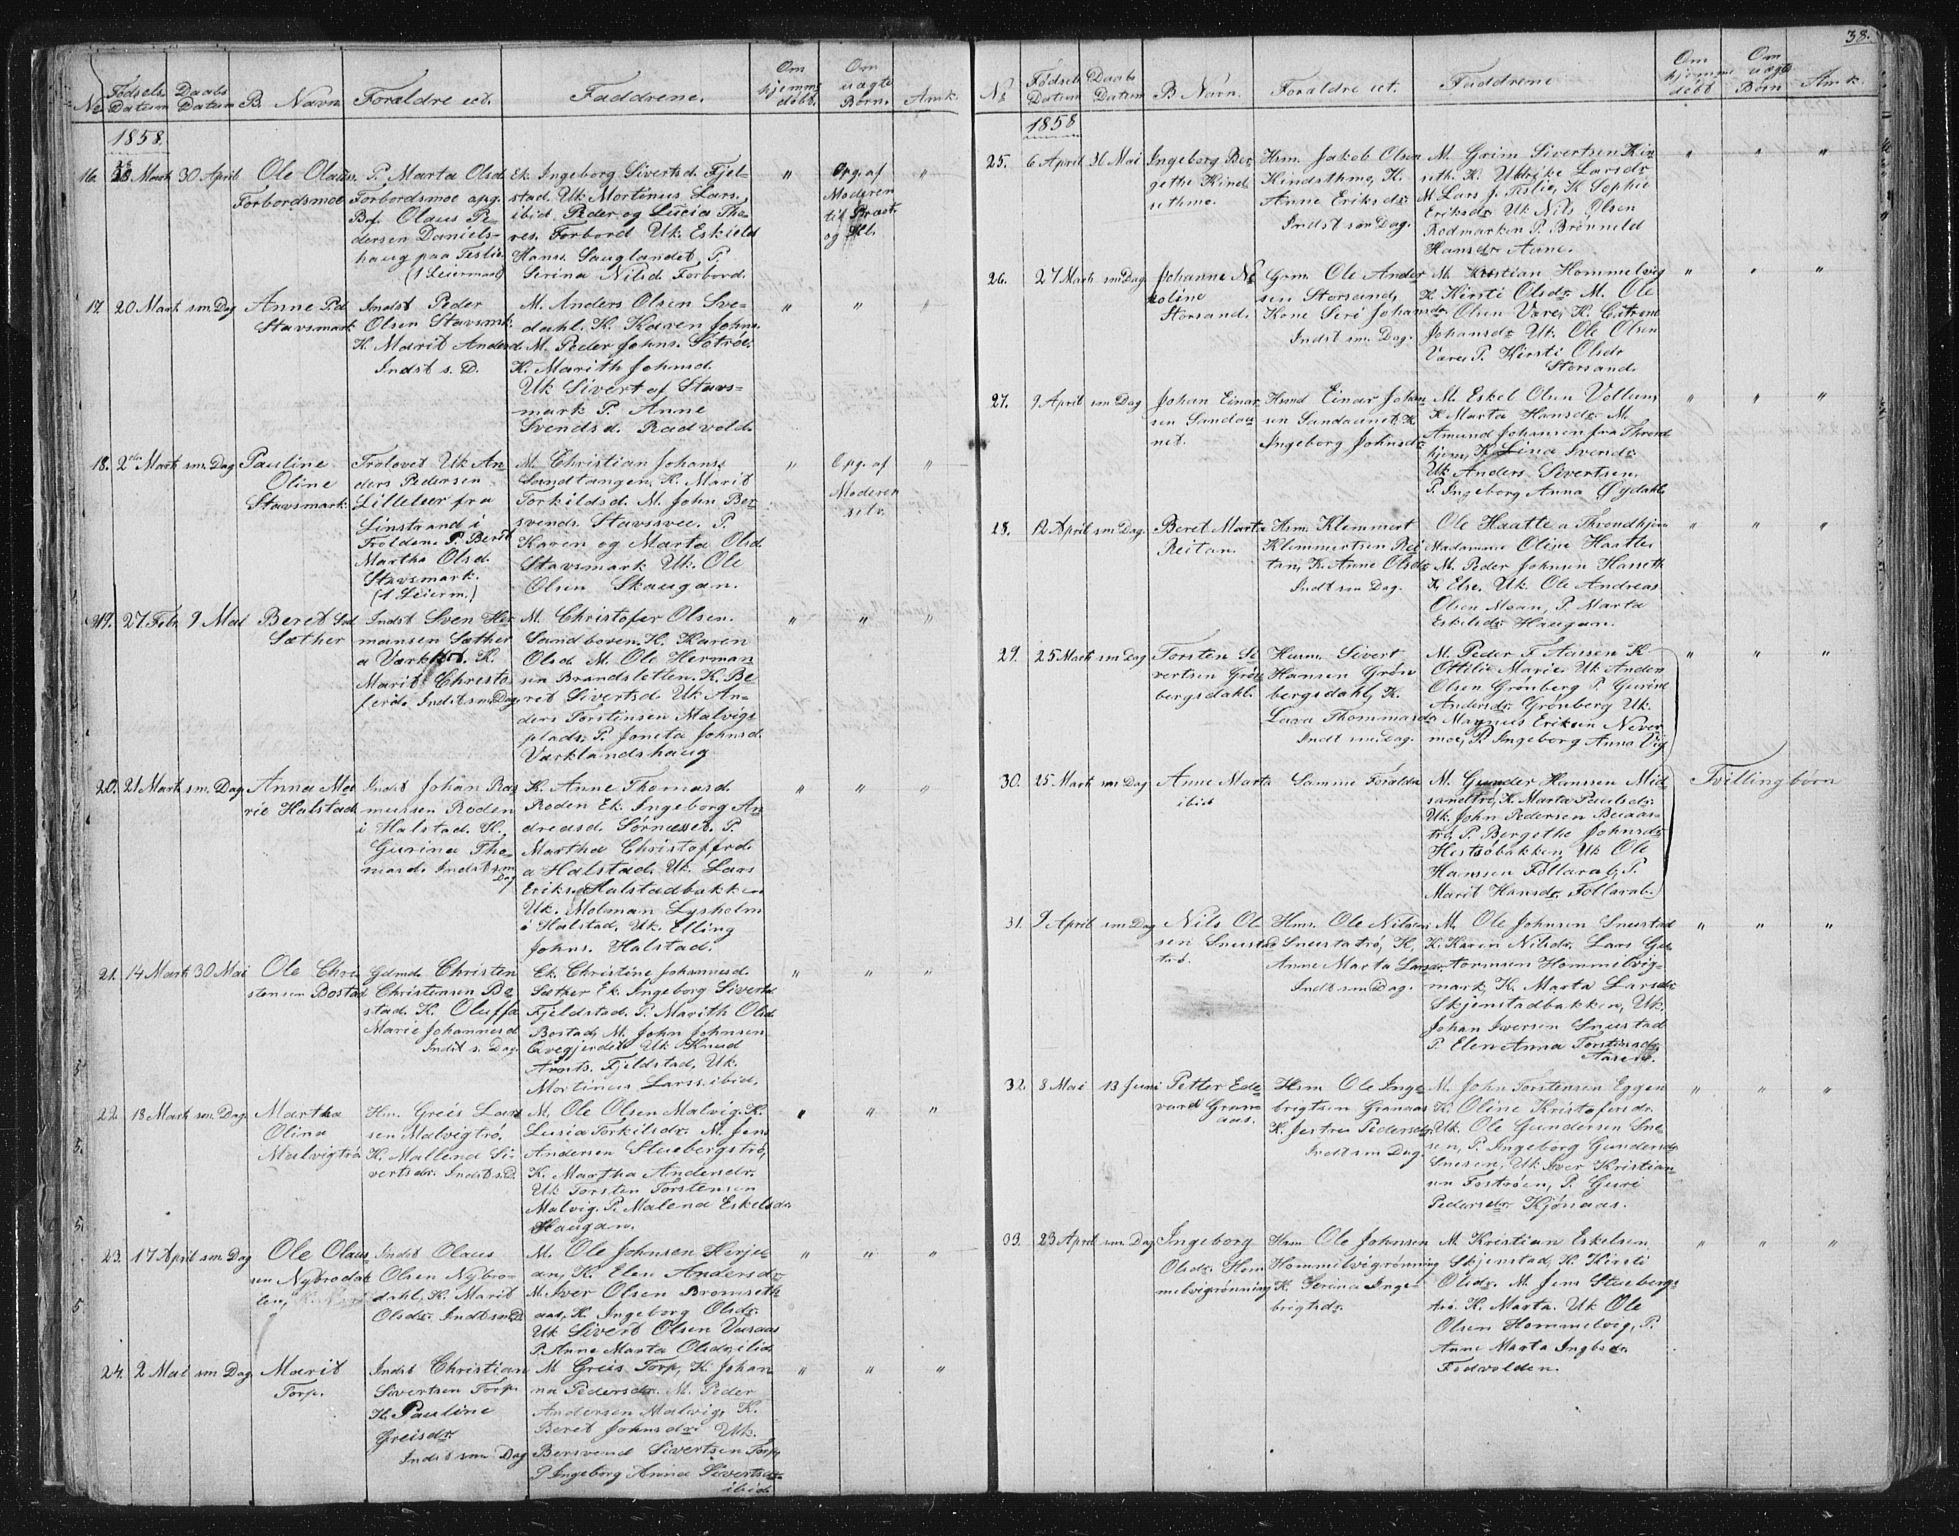 No
Fødsels Datum
Daabs Datum
B. Navn
Forældre etc.
Faddrene.
Om hjemmedøbt.
Om uægte Børn.
Amk.
1858.
16. 28 Marts 30 April
Ole Olaus.
Forbordsmoe
P. Marta Olsd.
Forbordsmoe opg.
Bf. Olaus Pe-
dersen Daniels-
haug paa Teslie
(1 Leierm)
Ek. Ingeborg Sivertsd. Fjel-
stad. Uk. Mortinus Lars.
ibid. Peder og Lucia Tho-
res. Forbord Uk. Eskild
Hans. Sauglandet, P.
Serina Nilsd. Forbord.
"
Opg. af
Moderen
til Præst
og
"
17. 20 Mark sm Dag
Anne Pd
Stavsmark
Indst Peder
Olsen Stavsmk.
K. Marit Andersd.
Indst s. D.
M. Anders Olsen Sve-
dahl. K. Karen Johns.
M. Peder Johns. Sotrøe.
K. Marith Johnsd.
Uk Sivert af Stavs-
mark P. Anne
Svendsd. Radvold.
" " "
18. 2den Mark sm. Dag
Pauline
Oline
Stavsmark
Trolovet Uk An-
ders Pedersen
Lilleleer fra
Linstrand i
Trolden. P. Berit
Martha Olsd.
Stavsmark.
(1 Leierm.)
M. Christian Johans.
Sandtangen. K. Marit
Torkildsd. M. John Ber-
svends. Stavssvee. P.
Karen og Marta Olsd.
Stavsmark Uk. Ole
Olsen Skaugan.
"
Opg. af
Moderen
selv.
"
19. 27 Febr 9 Mai
Beret Sd
Sæther
Indst Sven Her
mansen Sæther
K.
Marit Christo-
ferd. Indst sm Dag.
M. Christofer Olsen.
Sandboven. K. Karen
Olsd. M. Ole Herman
sen Brandsletten. K. Be
ret Sivertsd. Uk. An-
ders Torstinsen Malvigs
plads. P. Joneta Johnsd.
Varklandshaug
" " "
20. 21 Mark sm. Dag
Anna Ma
rie Halstad
Indst Johan Ras
mussen Roden
i Halstad. K.
Gurina Tho-
masd. Indst sm
Dag
K. Anne Thomasd.
Roden Ek. Ingeborg An
dreasd. Sørnesset. P.
Martha Christofferd.
a Halstad. Uk. Lars
Eriks. Halstadbakken
Uk. Molman Lysholm
i Halstad. Uk. Elling
Johns. Halstad.
" " "
21. 14 Mark 30 Mai
Ole Chri
stensen Bostad
Gdmd. Christen
Christensen Bo-
stad. K. Oluffa
Marie Johannesd.
Indst s. Dag
Ek. Christine Johannesd.
Sæther Ek. Ingeborg Sivertsd
Fjeldstad. P. Marith Olsd.
Bostad, M. John Johnsen
Qvegjerdet Uk Knud
Arnts. Fjeldstad, Uk.
Mortinus Larss. ibid.
" " "
22. 18 Mark sm. Dag.
Martha
Olina
Malvigtrø
Hm. Greis Lars
sen Malvigtrø,
K. Mallena Si-
vertsdr. Indst s. D.
M. Ole Olsen Malvig. K.
Lusia Torkilsdr. M. Jens
Andersen Stuebergstrø,
K. Martha Andersdr.
Uk Torsten Torstensen
Malvig. P. Malena Eskelsdr.
Haugan.
" " "
23. 17 April sm Dag
Ole Olaus
sen Nybrodah
len,
Indst Olaus
Olsen Nybro-
dahl, K. Marit
Olsdr. Indst sm D.
M. Ole Johnsen Herjei
an, K. Elen Andersdr.
M. Iver Olsen Bromseth
aas, K. Ingeborg Olsdr.
Uk Sivert Olsen
P. Anne Marta Olsdr. ibid.
" " "
24. 2 Mai sm Dag.
Marit
Torp.
Indst Christian
Sivertsen Torp.
K. Pauline
Greisdr.
Indst sm Dag
M Greis Torp, K. Johan
na Pedersdr. M. Peder
Andersen Malvig, K.
Beret Johnsdr. Uk.
Bersvend Sivertsen Torp
P Ingeborg Anna Sivertsdr.
ibid.
" " "
38.
No
Fødsels Datum
Daabs Datum
B Navn.
Forældre ect.
Faddrene
Om hjemmedøbt
Om uægte Børn
Amk.
1858
25. 6 April 16 Mai
Ingeborg Ber-
gethe Kind
sethmo.
Hsm. Jakob Olsen
Kindsethmo, K.
Anne Eriksdr.
Indst sm Dag.
M. Grim Sivertsen Kin-
seth. K. Uldrike Larsdr.
M. Lars J. Teslie, K Sophie
Eriksdr. Uk Nils Olsen
Rodmarken P. Brønneld
Hansdr. Aune.
" " "
26. 27 Mark sm Dag.
Johanne Ni
koline
Storsand.
Grm. Ole Ander
sen Storsand,
Kone Seri Johansdr.
Indst sm Dag.
M. Kristian Hommelvig
K. Kirsti Olsdr. M. Ole
Olsen Vare, K. Catrine
Johansdr. Uk. Ole Olsen
Vare, P. Kirsti Olsdr.
Storsand.
" " "
27. 9 April sm Dag
Johan Einar
sen Sandau
net.
Hsmd Einar Johan
sen Sandaunet, K.
Ingeborg Johnsdr.
M. Eskel Olsen Vollum,
K. Marta Hansdr. M.
Amund Johansen fra Thrond
hjem, K. Lina Svends.
Uk Anders Sivertsen.
P. Ingeborg Anna Øydahl.
" " "
28. 12 April sm Dag.
Beret Marta
Reitan.
Hsm. Klemmert
Klemmertsen Rei
tan, K. Anne Olsdr.
Indst sm Dag.
Ole Haatte a Throndhjem
Madamme Oline Haatte,
M. Peder Johnsen Hasseth
K. Else. Uk. Ole Andreas
Olsen Moan, P. Marta
Eskelsdr. Haugan.
" " "
29. 25 Mark sm Dag
Torsten Si
vertsen Grøn
bergsdahl.
Husm. Sivert
Hansen Grøn
bergsdahl, K.
Lava Thommasdr.
Indst sm. Dag.
M. Peder T Aassen K
Ottilie Marie. Uk Anders
Olsen Grønberg P. Gurine
Andersdr. Grønberg Uk.
Magnus Eriksen Never
moe, P. Ingeborg Anna Vig
" " "
30. 25 Mark sm Dag
Anne Marta
ibid
Samme Forældre
M. Gunder Hanssen Mid
sandtrø, K. Marta Paulsdr.
Uk. John Pedersen Buaas-
trø, P. Bergethe Johnsdr.
Hestsøbakken, Uk Ole
Hanssen Føllaral, P.
Marit Hansdr. Føllaral.
Tvillingbørn
31. 9 April sm Dag
Nils Ol
sen Sneistad
trø.
Hsm. Ole Nilsen
Sneistatrø, K.
Anne Marta Larsdr.
Indst sm Dag.
M. Ole Johnsen Sneistad
K. Karen Nilsdr. Lars Gut
tormsen Hommelvig-
mark, K. Marta Larsdr.
Skjenstadbakken, Uk
Johan Iversen Sneistad
P. Elen Anna Torstinsdr.
Aasen.
" " "
32. 8 Mai 13 Juni
Petter Ed-
vard Gran
aas.
Hsm Ole Inge-
brigtsen Granaas
K. Jertru Pedersdr.
Indst sm Dag
M. John Torstensen Eggen
K. Oline Kristofersdr.
Uk. Ole Gundersen Sne
sen, P. Ingeborg Gundersdr.
Snesen, Uk Iver Kristian
sen Fostrøen, P. Guri
Pedersdr. Kjønaas.
" " "
33. 23 April sm Dag
Ingeborg
Olsdr. Hom
melvigrønning
Hsm Ole Johnsen
Hommelvigrønning
K. Serina Inge-
brigtsdr.
M. Kristian Eskelsen,
Skjenstad, K. Kirsti
Olsdr. M. Jens Stuebergs
trø. K. Marta. Uk Ole
Olsen Hommelvig, P.
Anne Marta Ingbdr.
Fedvolden.
" " "